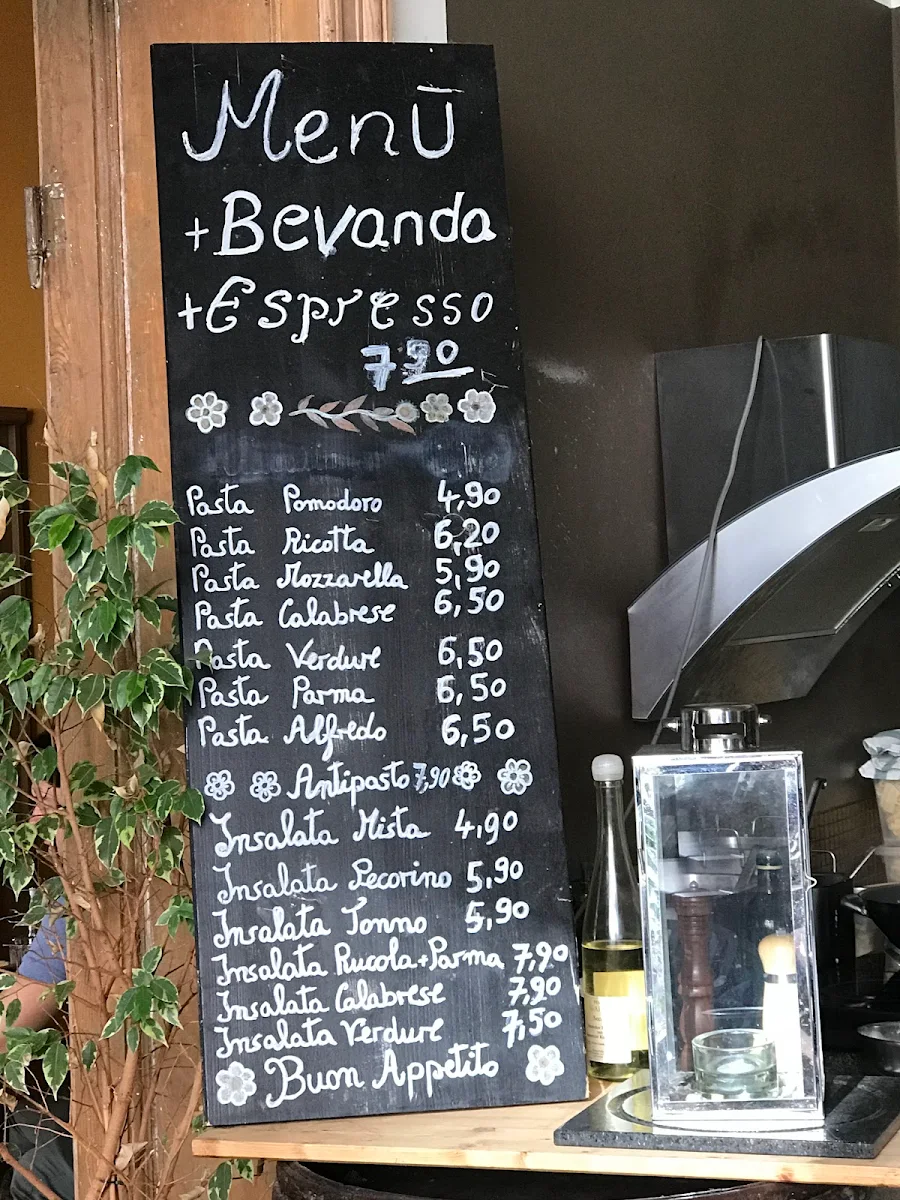 Menū
+Bevanda
+Espresso
7,90
Pasta Pomodoro 4,90
Pasta Ricotta 6,20
Pasta Mozzarella 5,90
Pasta Calabrese 6,50
Pasta Verdure 6,50
Pasta Parma 6,50
Pasta Alfredo 6,50
Antipasto 7,90
Insalata Mista 4,90
Insalata Pecorino 5,90
Insalata Tonno 5,90
Insalata Rucola+Parma 7,90
Insalata Calabrese 7,90
Insalata Verdure 7,50
Buon Appetito